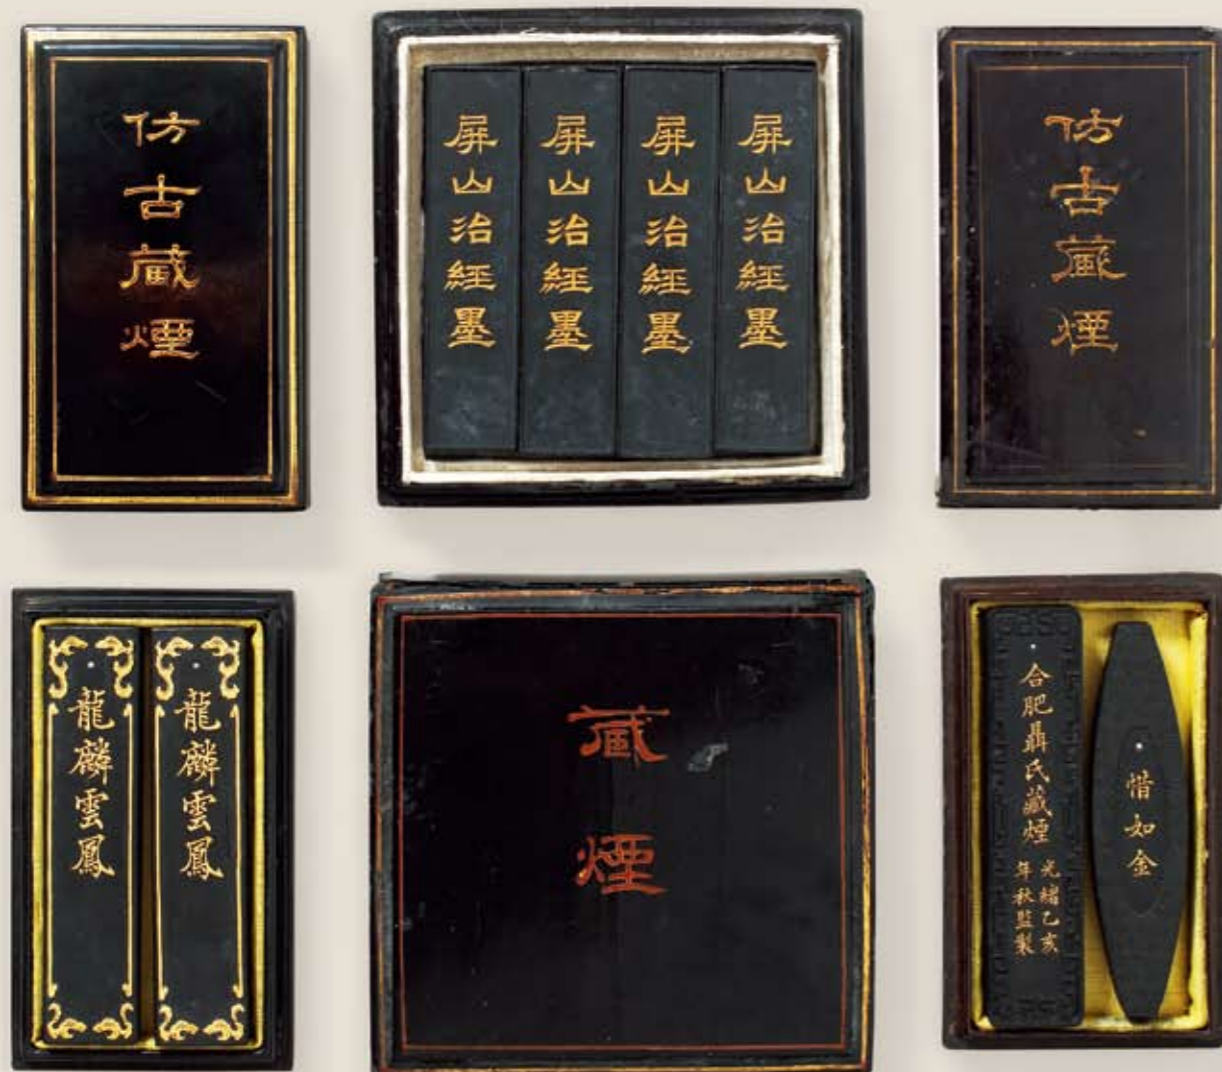 仿古藏煙
屏山治經墨
屏山治經墨
屏山治經墨
屏山治經墨
仿古藏煙
龍麟雲鳳
龍麟雲鳳
藏煙
合肥聶氏藏煙
光緒乙亥
年秋監製
惜如金